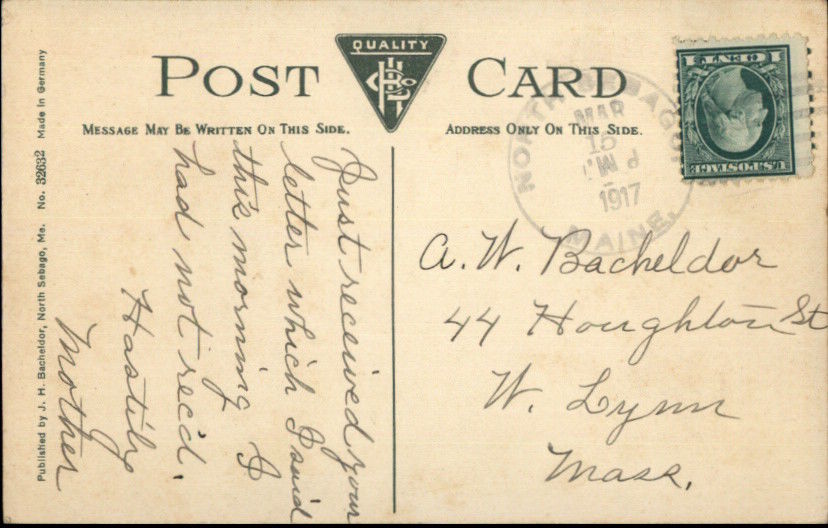 POST CARD
QUALITY
MESSAGE MAY BE WRITTEN ON THIS SIDE.
ADDRESS ONLY ON THIS SIDE.
Published by J. H. Bacheldor, North Sebago, Me. No. 32632 Made in Germany
Just received your
letter which I said
this morning I
had not rec'd.
Hastily
Mother
NORTH SEBAGO
MAR
15
1917
MAINE.
U.S. POSTAGE
1 CENT 1
A. W. Bacheldor
44 Houghton St
W. Lynn
Mass.